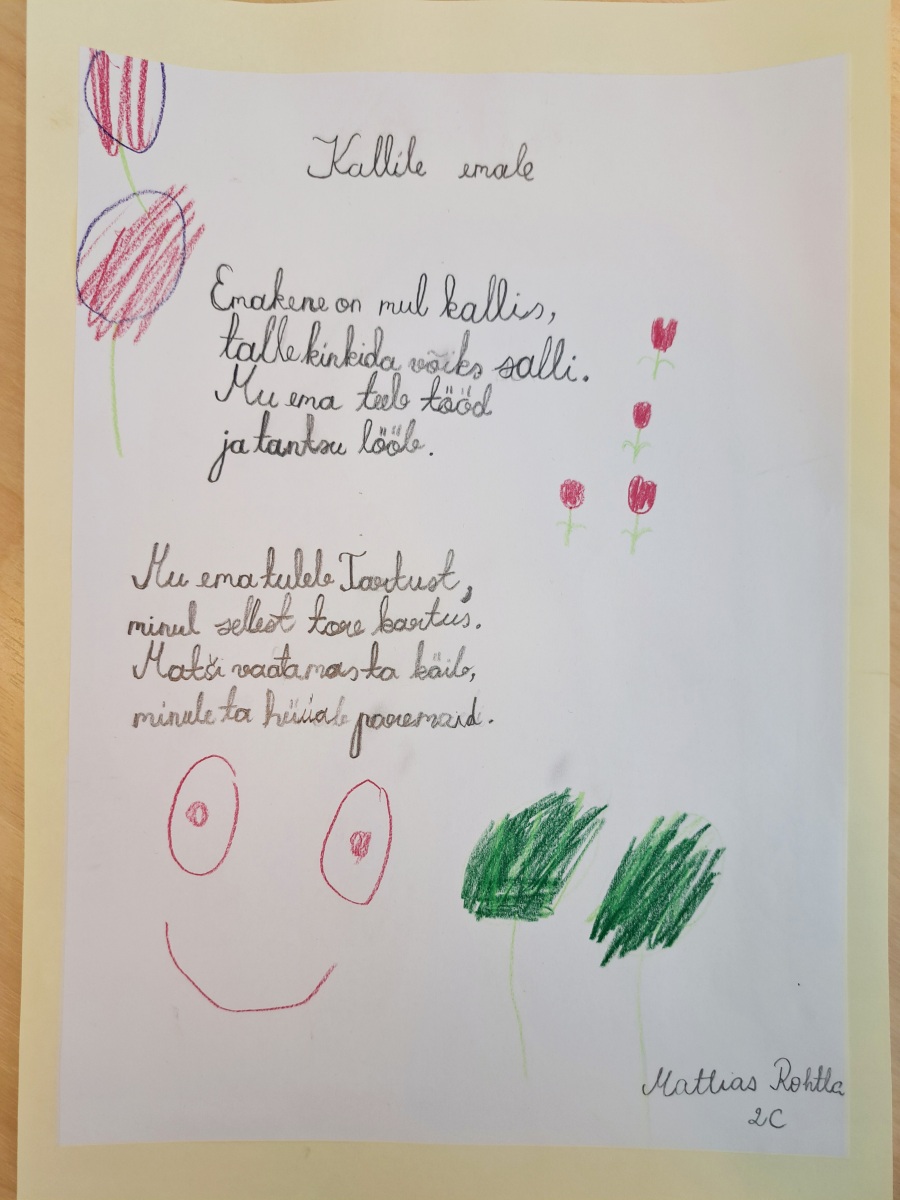 Kallile emale
Emakene on mul kallis,
talle kinkida võiks salli.
Mu ema teeb tööd
ja tantsu lööb.
Mu ema tuleb Tartust,
minul sellest tore kartus.
Matši vaatamas ta käib,
minule ta hüüab paremaid.
Mattias Rohtla
2C